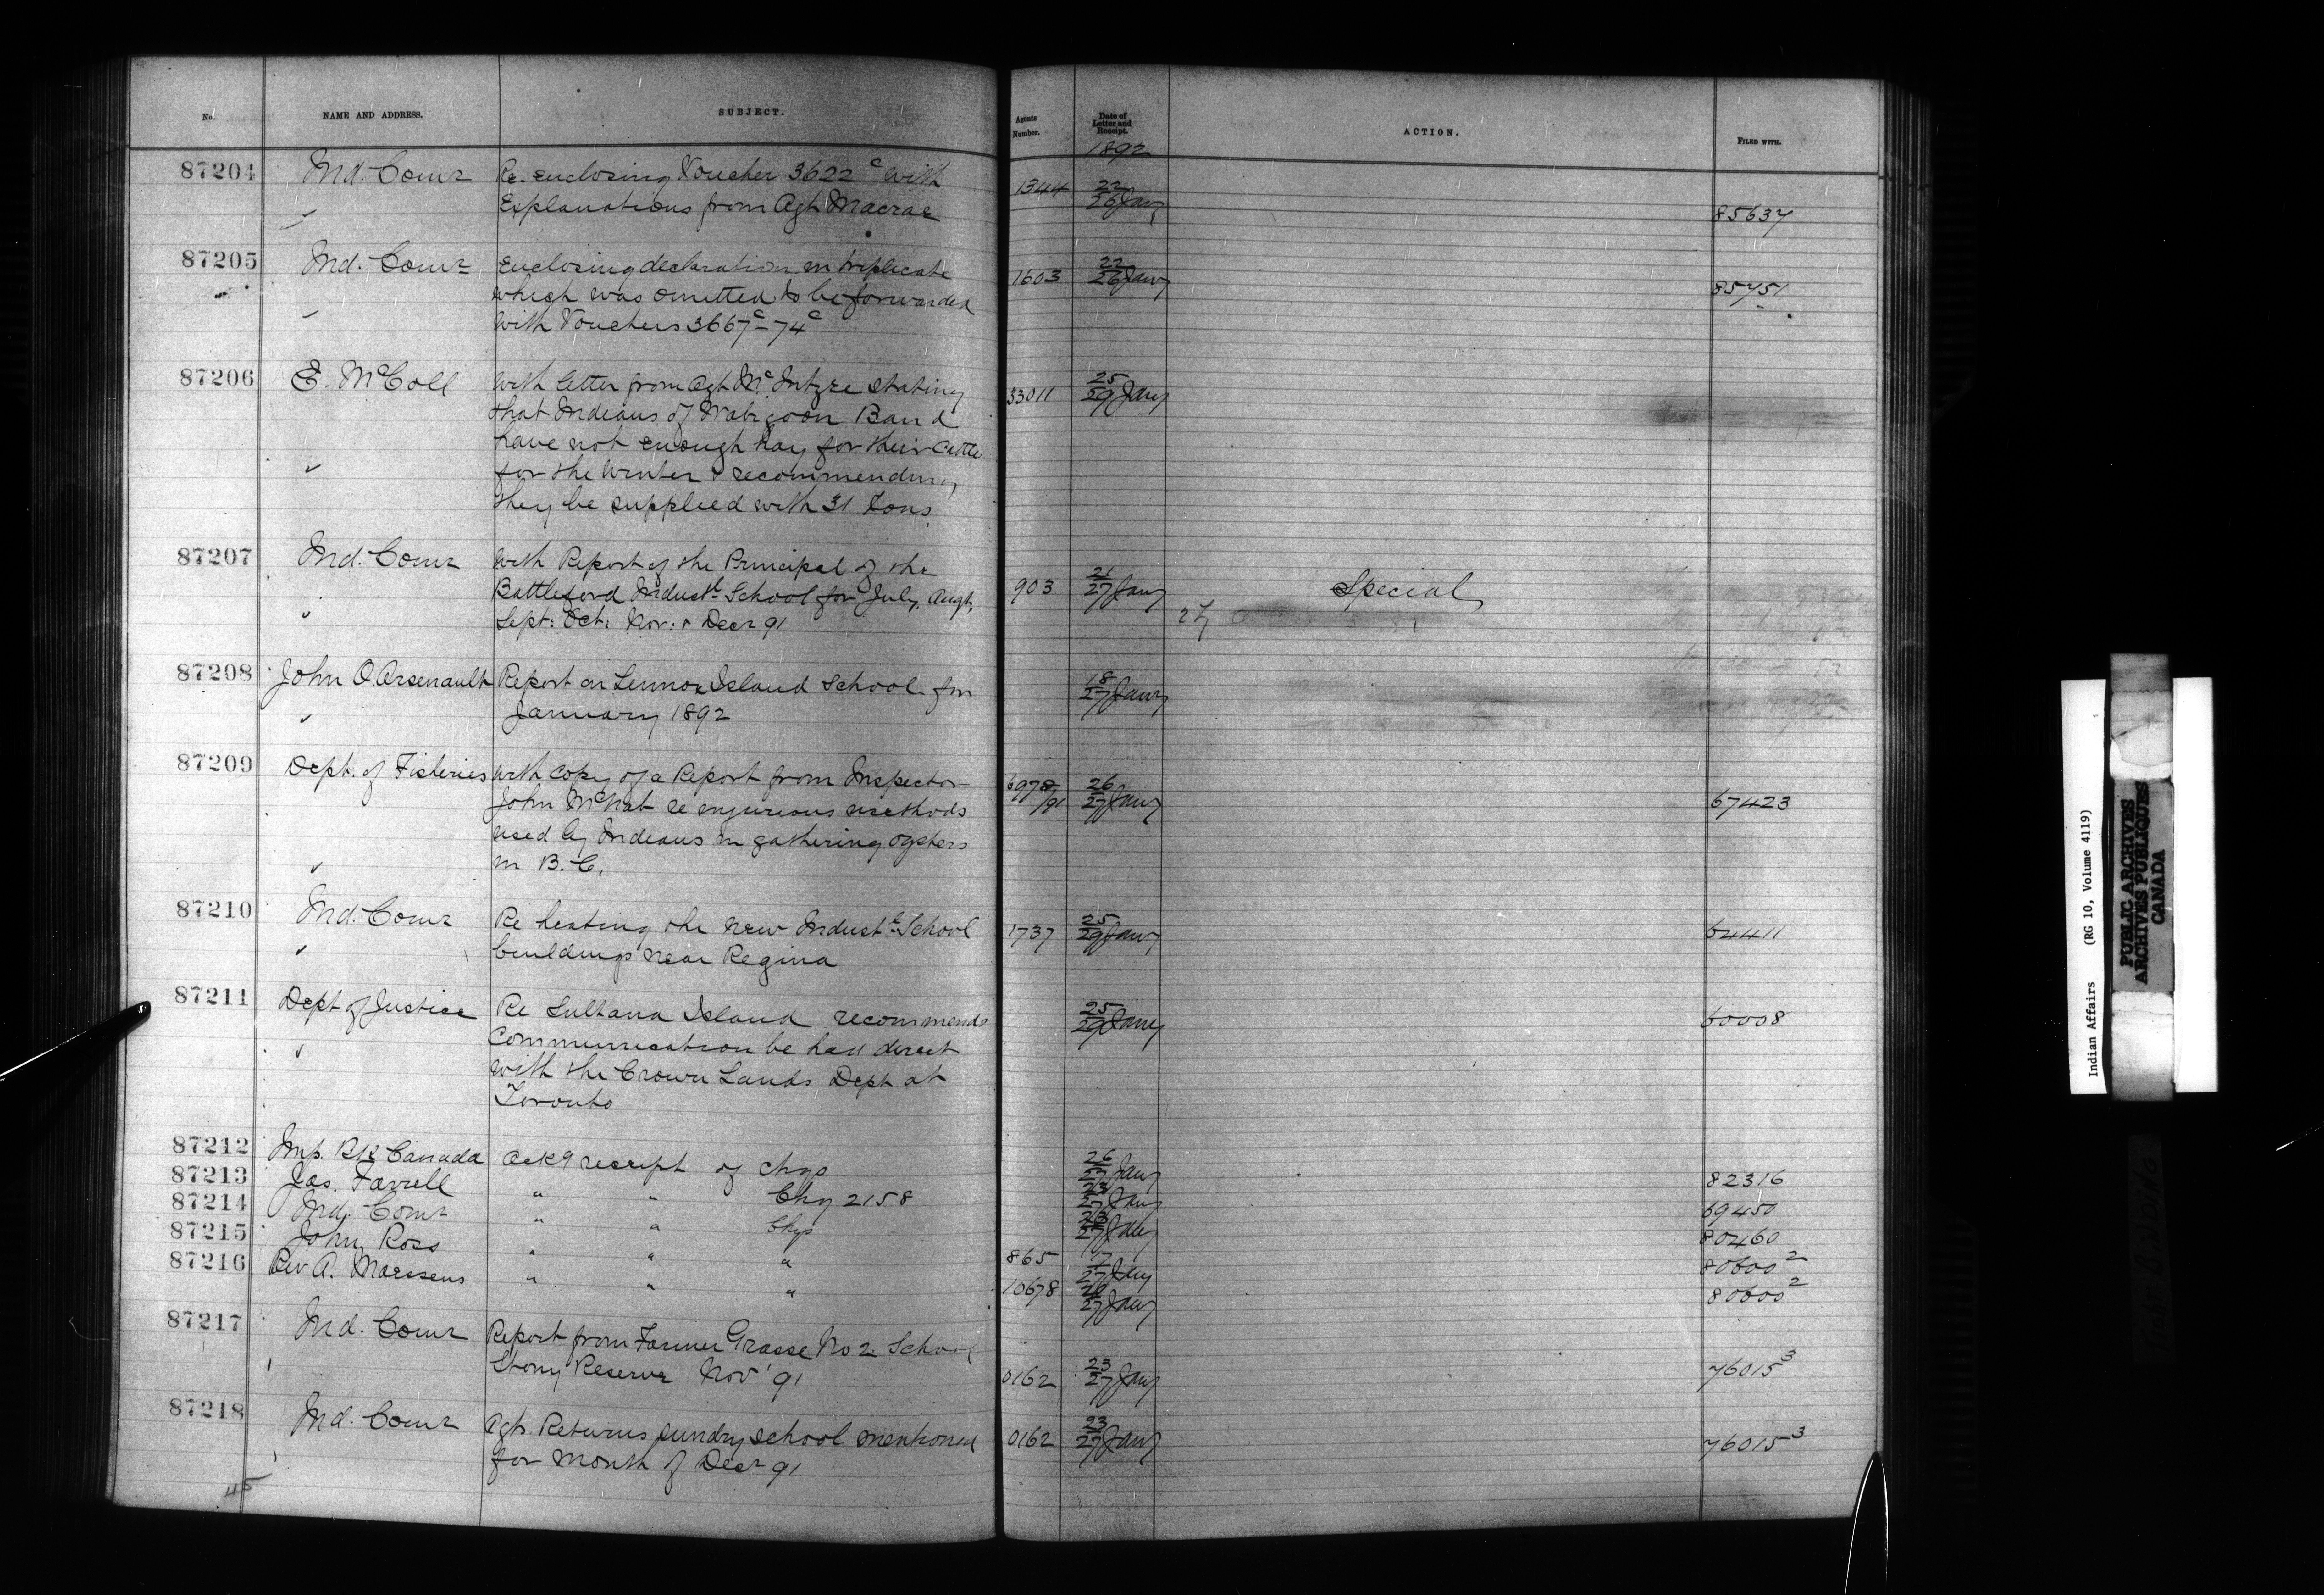 No.
NAME AND ADDRESS.
SUBJECT.
87204
Ind. Comr
Re. enclosing Voucher 3622 c with
Explanations from Agt Macrae
87205
Ind. Comr
Enclosing declaration in triplicate
which was omitted to be forwarded
with Vouchers 3667c - 74c
87206
E. McColl
With letter from Agt McIntyre stating
that Indians of Wabigoon Band
have not enough hay for their Cattle
for the Winter & recommending
they be supplied with 31 Tons
87207
Ind. Comr
With Report of the Principal of the
Battleford Industl School for July, Augt,
Sept: Oct: Nov: & Decr 91
87208
John O Arsenault
Report on Lennox Island School for
January 1892
87209
Dept. of Fisheries
With copy of a Report from Inspector
John McNab re injurious methods
used by Indians in gathering oysters
in B. C.
87210
Ind. Comr
Re heating the new Industl School
buildings near Regina
87211
Dept of Justice
Re Sultana Island recommends
Communication be had direct
with the Crown Lands Dept at
Toronto
87212
Imp. Bk Canada
Ackg receipt of chqs
87213
Jas. Farrell
" " Chq 2158
87214
Ind. Comr
" " Chqs
87215
John Ross
" " "
87216
Rev A. Maessens
" " "
87217
Ind. Comr
Report from Farmer Grasse No 2 School
Stony Reserve Nov' 91
87218
Ind. Comr
Agts. Returns sundry school mentioned
for month of Decr 91
45
Agents
Number.
Date of
Letter and
Receipt.
1892
ACTION.
FILED WITH.
1344
22
26 Jany
85637
1603
22
26 Jany
85751
33011
25
29 Jany
903
21
27 Jany
Special
27
18
27 Jany
6978/91
26
27 Jany
67423
1737
25
29 Jany
64411
25
29 Jany
60008
26
27 Jany
82316
27 Jany
69450
27 Jany
80460
865
17
27 Jany
80600 2
10678
27 Jany
80600 2
0162
23
27 Jany
76015 3
0162
23
27 Jany
76015 3
Indian Affairs (RG 10, Volume 4119)
PUBLIC ARCHIVES
ARCHIVES PUBLIQUES
CANADA